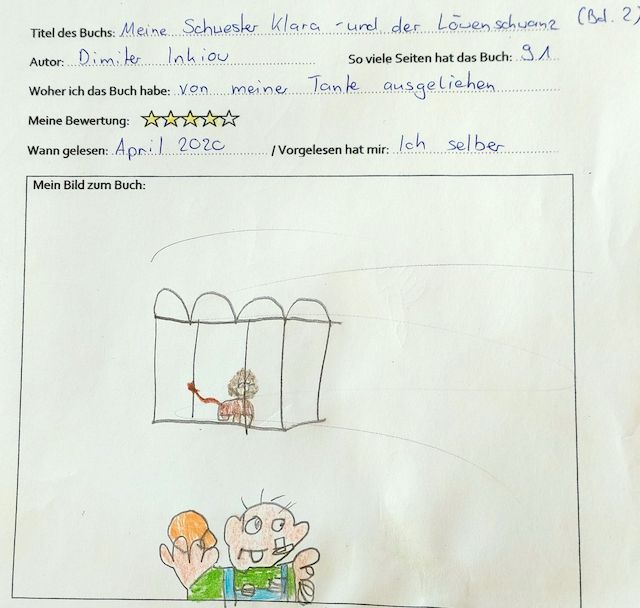 Titel des Buchs: Meine Schwester Klara - und der Löwenschwanz (Bd. 2)
Autor: Dimiter Inkiow So viele Seiten hat das Buch: 91
Woher ich das Buch habe: von meiner Tante ausgeliehen
Meine Bewertung:
Wann gelesen: April 2020 / Vorgelesen hat mir: Ich selber
Mein Bild zum Buch: